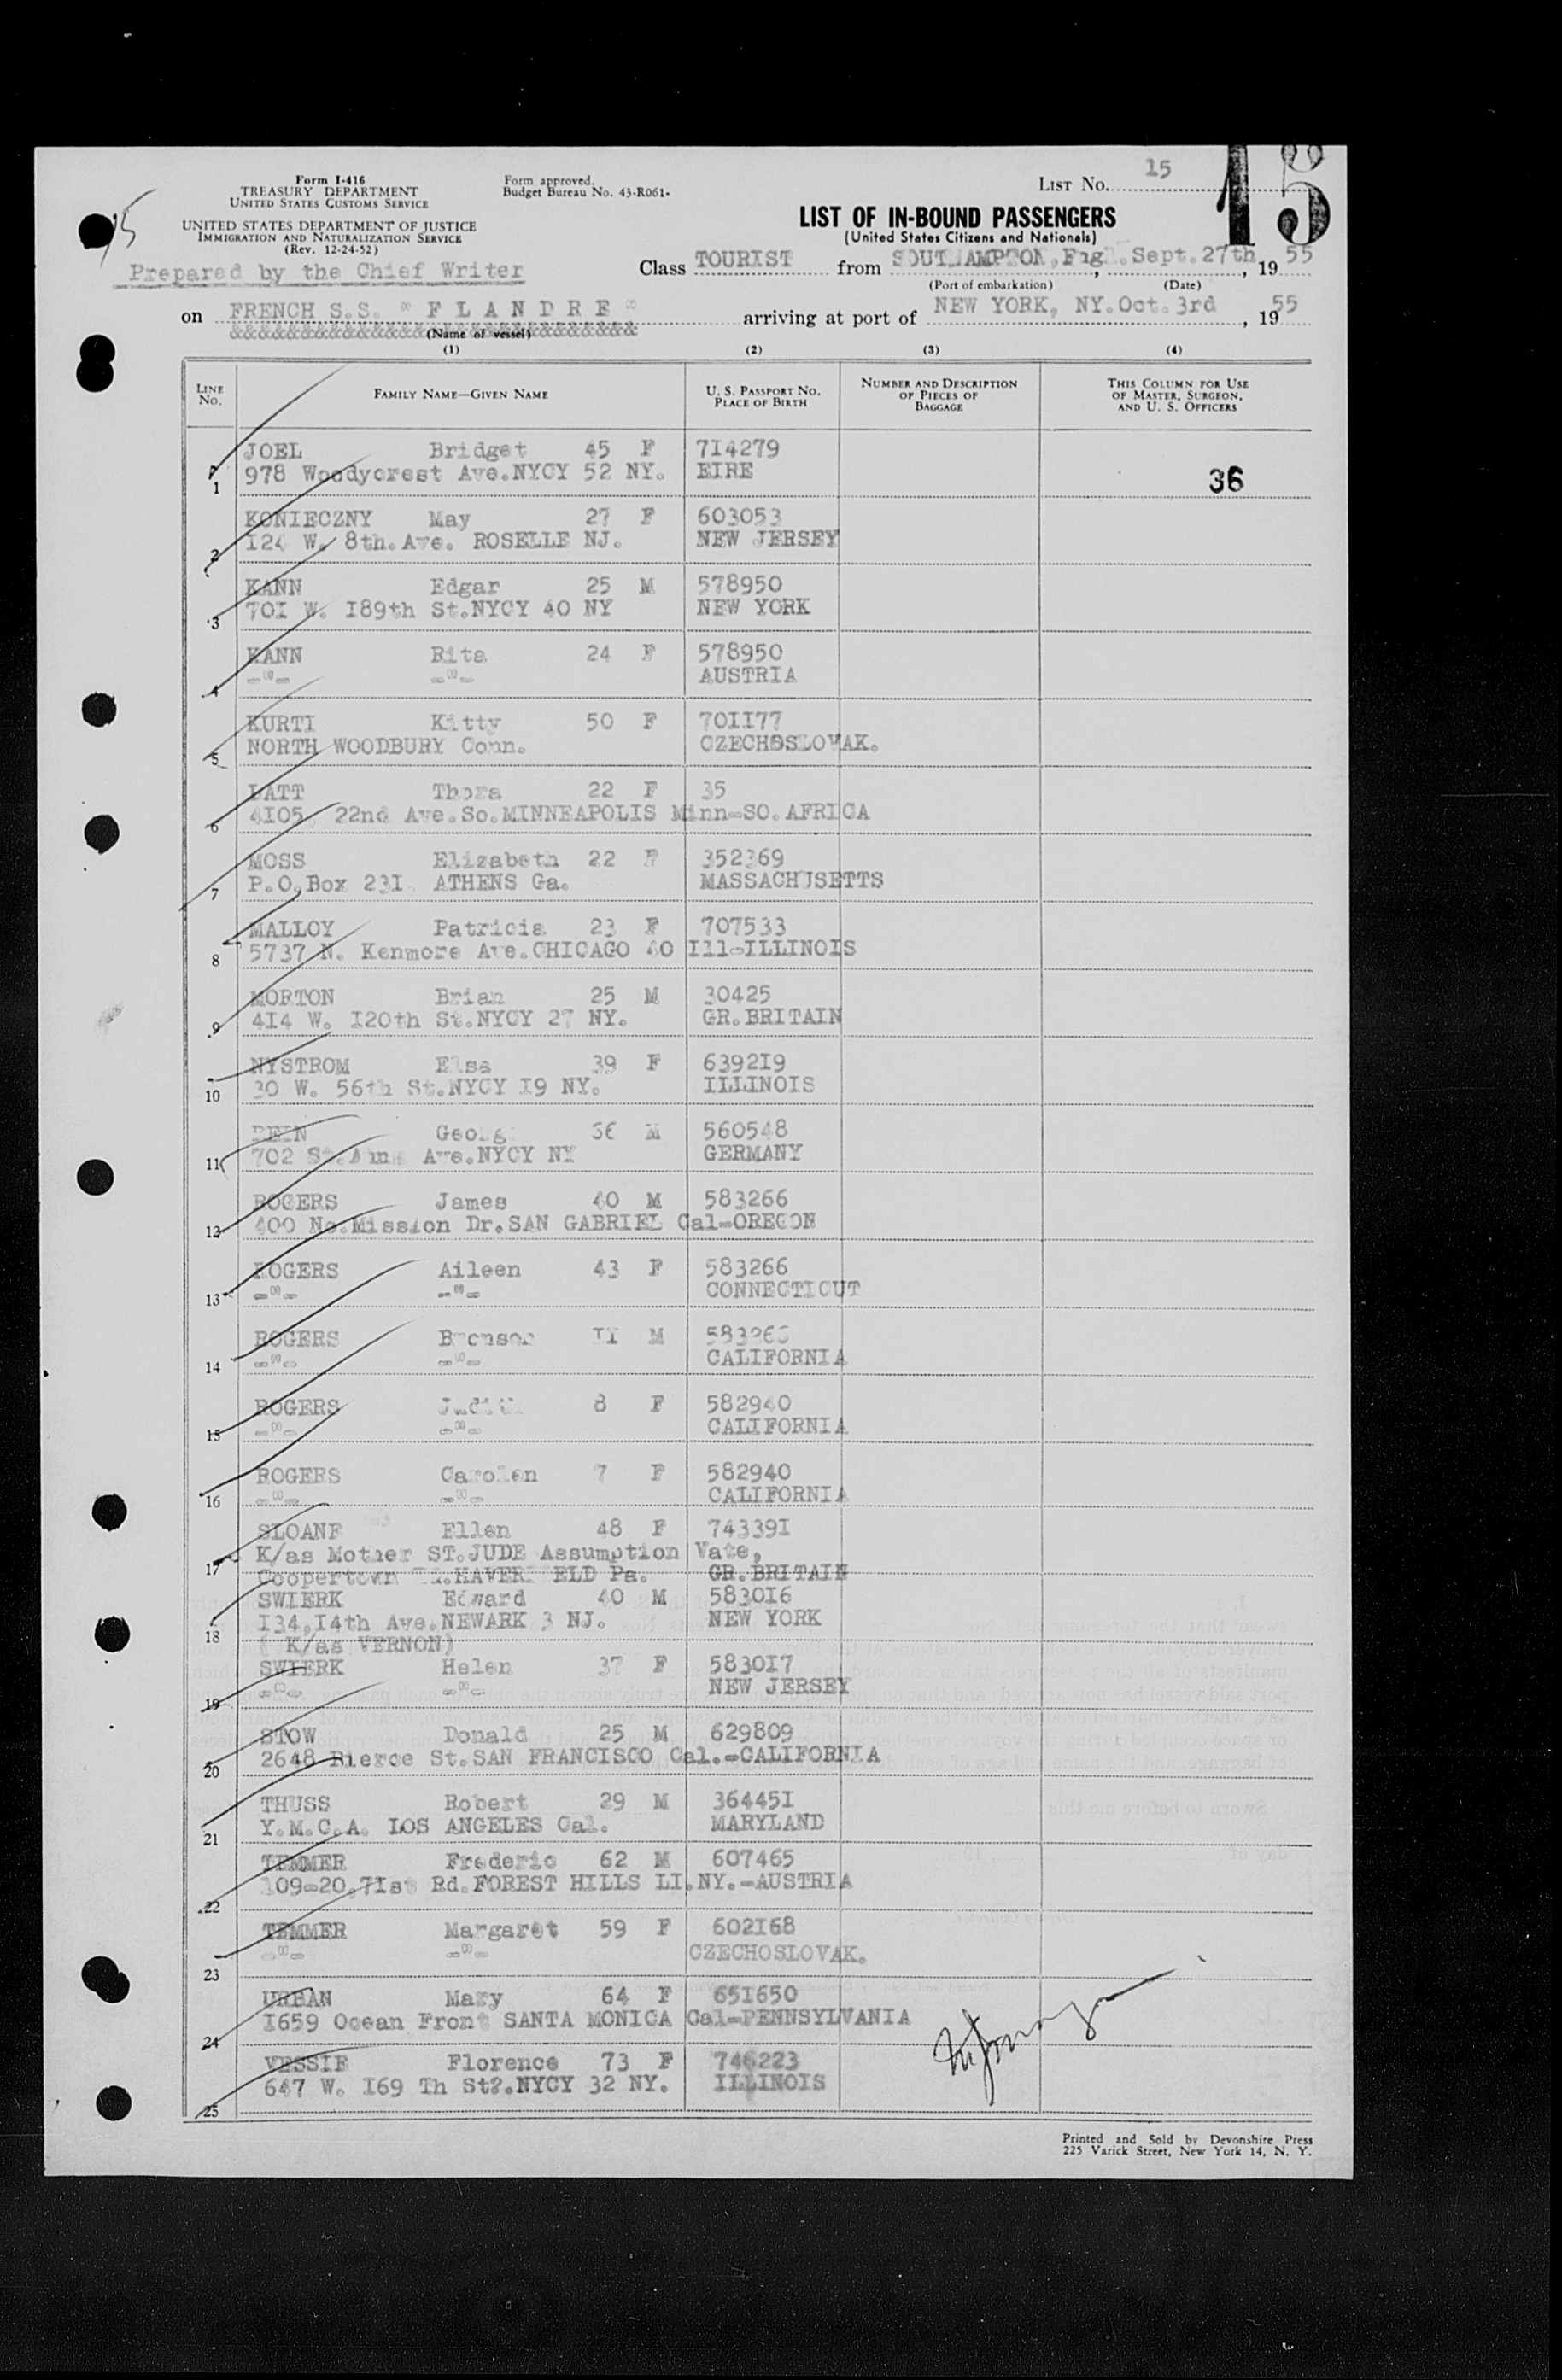 Form I-416
TREASURY DEPARTMENT
UNITED STATES CUSTOMS SERVICE
UNITED STATES DEPARTMENT OF JUSTICE
IMMIGRATION AND NATURALIZATION SERVICE
(Rev. 12-24-52)
Prepared by the Chief Writer
Form approved.
Budget Bureau No. 43-R061-
LIST No. 15
15
LIST OF IN-BOUND PASSENGERS
(United States Citizens and Nationals)
Class TOURIST from SOUTHAMPTON, Engl. Sept. 27th, 1955
(Port of embarkation) (Date)
on FRENCH S.S. " F L A N D R E " arriving at port of NEW YORK, NY. Oct. 3rd, 1955
(Name of vessel)
(1) (2) (3) (4)
LINE No. FAMILY NAME—GIVEN NAME U. S. PASSPORT NO. PLACE OF BIRTH NUMBER AND DESCRIPTION OF PIECES OF BAGGAGE THIS COLUMN FOR USE OF MASTER, SURGEON, AND U. S. OFFICERS
JOEL Bridget 45 F 7I4279
1 978 Woodycrest Ave.NYCY 52 NY. EIRE 36
KONIECZNY May 27 F 603053
2 I24 W. 8th.Ave. ROSELLE NJ. NEW JERSEY
KANN Edgar 25 M 578950
3 70I W. I89th St.NYCY 40 NY NEW YORK
KANN Rita 24 F 578950
4 -"- -"- AUSTRIA
KURTI Kitty 50 F 70II77
5 NORTH WOODBURY Conn. CZECHOSLOVAK.
LATT Thora 22 F 35
6 4I05, 22nd Ave.So.MINNEAPOLIS Minn-SO.AFRICA
MOSS Elizabeth 22 F 352369
7 P.O.Box 23I ATHENS Ga. MASSACHUSETTS
MALLOY Patricia 23 F 707533
8 5737 N. Kenmore Ave.CHICAGO 40 Ill-ILLINOIS
MORTON Brian 25 M 30425
9 4I4 W. I20th St.NYCY 27 NY. GR.BRITAIN
NYSTROM Elsa 39 F 6392I9
10 30 W. 56th St.NYCY I9 NY. ILLINOIS
REIN Georg M 560548
11 702 St.Anns Ave.NYCY NY GERMANY
ROGERS James 40 M 583266
12 400 No.Mission Dr.SAN GABRIEL Cal-OREGON
ROGERS Aileen 43 F 583266
13 -"- -"- CONNECTICUT
ROGERS Bronson II M 583266
14 -"- -"- CALIFORNIA
ROGERS Judith 8 F 582940
15 -"- -"- CALIFORNIA
ROGERS Carolen 7 F 582940
16 -"- -"- CALIFORNIA
SLOANE Ellen 48 F 74339I
17 K/as Mother ST.JUDE Assumption Vate,
Coopertown Rd.HAVERFIELD Pa. GR.BRITAIN
SWIERK Edward 40 M 5830I6
18 I34,I4th Ave.NEWARK 3 NJ. NEW YORK
( K/as VERNON)
SWIERK Helen 37 F 5830I7
19 -"- -"- NEW JERSEY
STOW Donald 25 M 629809
20 2648 Pierce St.SAN FRANCISCO Cal.-CALIFORNIA
THUSS Robert 29 M 36445I
21 Y.M.C.A. LOS ANGELES Cal. MARYLAND
TEMMER Frederic 62 M 607465
22 109-20,7Ist Rd.FOREST HILLS LI.NY.-AUSTRIA
TEMMER Margaret 59 F 602I68
23 -"- -"- CZECHOSLOVAK.
URBAN Mary 64 F 65I650
24 I659 Ocean Front SANTA MONICA Cal-PENNSYLVANIA
VESSIE Florence 73 F 746223
25 647 W. I69 Th St?.NYCY 32 NY. ILLINOIS
Printed and Sold by Devonshire Press
225 Varick Street, New York 14, N. Y.